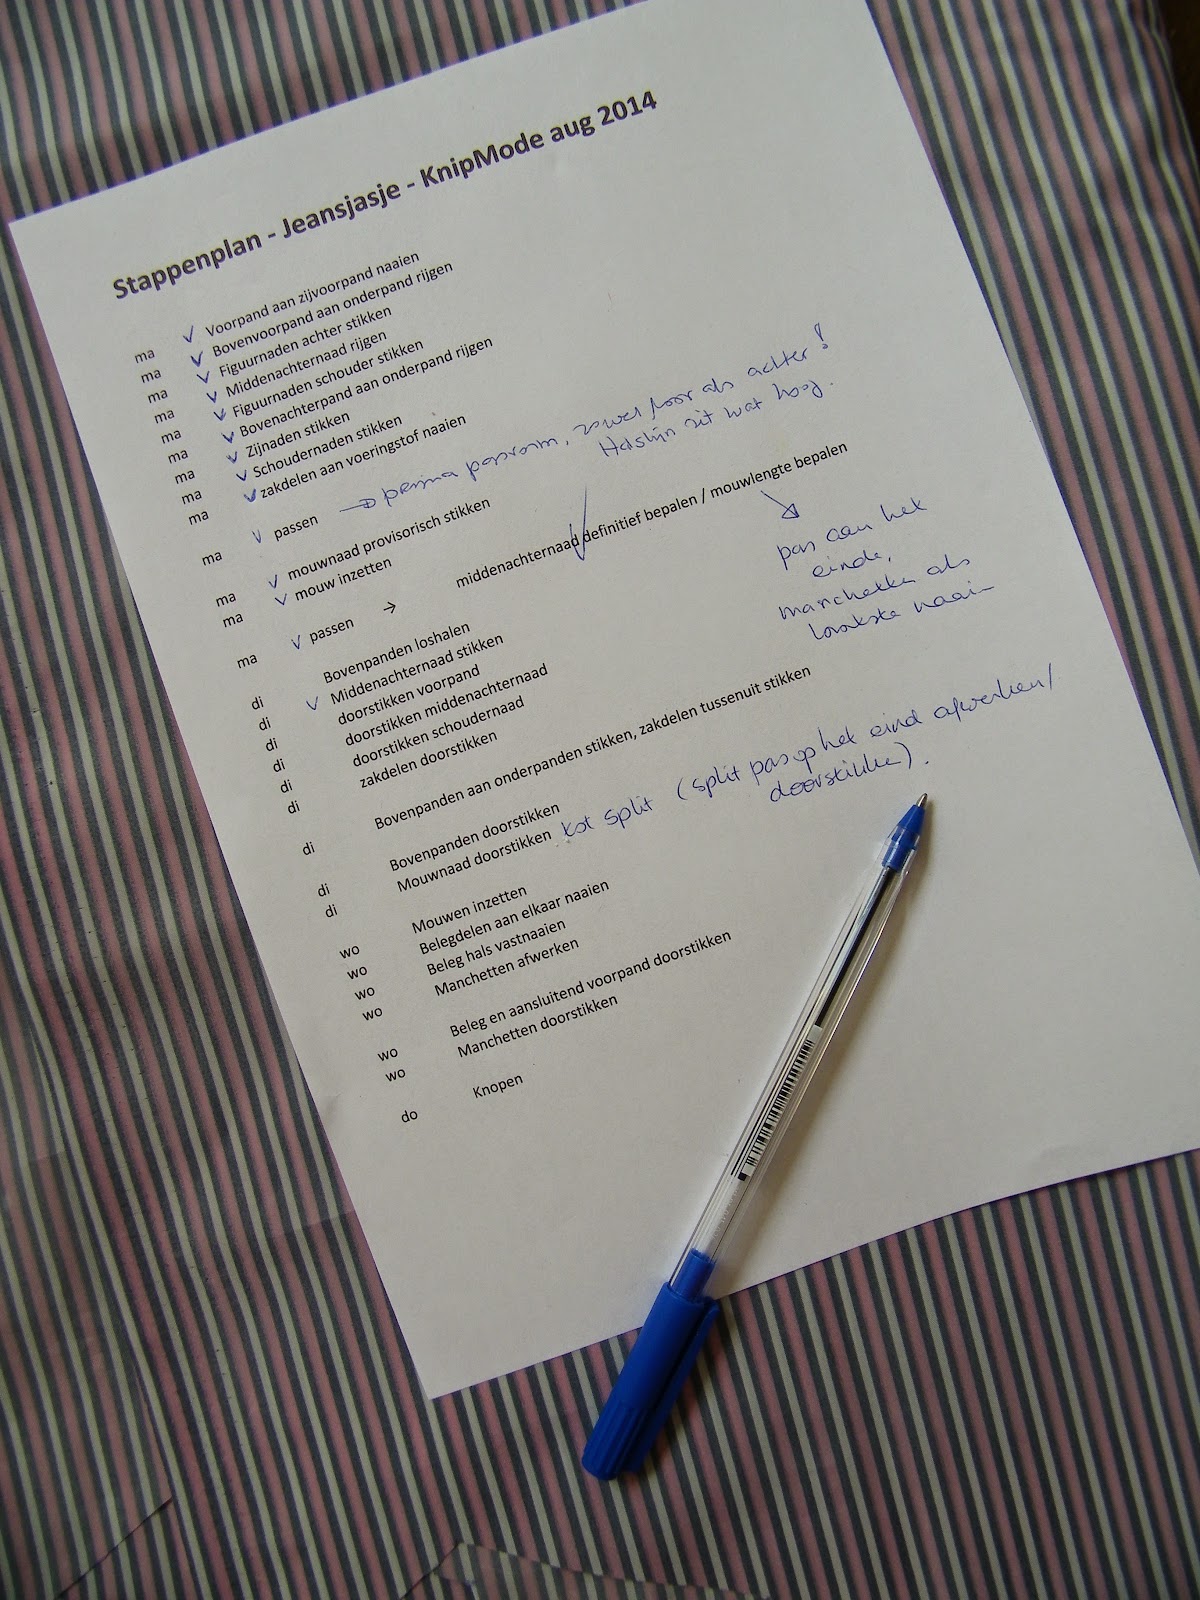 Stappenplan - Jeansjasje - KnipMode aug 2014
ma ✓ Voorpand aan zijvoorpand naaien
ma ✓ Bovenvoorpand aan onderpand rijgen
ma ✓ Figuurnaden achter stikken
ma ✓ Middenachternaad rijgen
ma ✓ Figuurnaden schouder stikken
ma ✓ Bovenachterpand aan onderpand rijgen
ma ✓ Zijnaden stikken
ma ✓ Schoudernaden stikken
ma ✓ zakdelen aan voeringstof naaien
ma ✓ passen → prima pasvorm, zowel voor als achter!
Halslijn zit wat hoog.
ma ✓ mouwnaad provisorisch stikken
ma ✓ mouw inzetten
ma ✓ passen → middenachternaad definitief bepalen / mouwlengte bepalen
pas aan het
einde,
manchetten als
laatste naaien
di Bovenpanden loshalen
di ✓ Middenachternaad stikken
di doorstikken voorpand
di doorstikken middenachternaad
di doorstikken schoudernaad
di zakdelen doorstikken
di Bovenpanden aan onderpanden stikken, zakdelen tussenuit stikken
di Bovenpanden doorstikken
di Mouwnaad doorstikken tot split (split pas op het eind afwerken/
doorstikken).
wo Mouwen inzetten
wo Belegdelen aan elkaar naaien
wo Beleg hals vastnaaien
wo Manchetten afwerken
wo Beleg en aansluitend voorpand doorstikken
wo Manchetten doorstikken
do Knopen